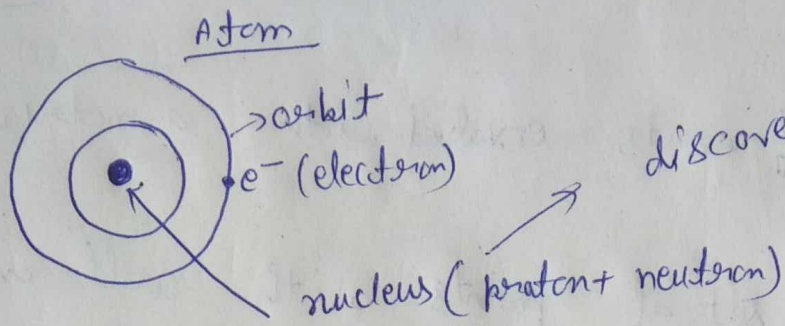 Atom
orbit
e⁻ (electron)
nucleus ( proton + neutron)